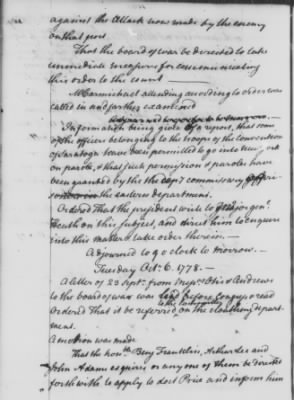 against the attack now made by the enemy
on that post
That the board of war be directed to take
immediate measures for communicating
this order to the count —
Mr Carmichael attending according to order was
called in and farther examined
Information being given of a report, that some
of the officers belonging to the troops of the Convention
of Saratoga have been permitted to go into New york
on parole, & that such permission & paroles have
been granted by the the depy commissary of pri-
soners in the eastern department.
Ordered That the president write to major genl
Heath on this subject, and direct him to enquire
into this matter & take order therein —
Adjourned to 9 o clock to morrow. —
Tuesday Octr. 6. 1778. —
A letter of 23 Septr. from Messrs Otis & Andrews
to the board of war was laid before congress & read
Ordered That it be referred to the
clothing depart-
ment.
A motion was made
That the honble Benj Franklin, Arthur Lee and
John Adams esquires or any one of them be directed
forthwith to apply to Dost Price and inform him